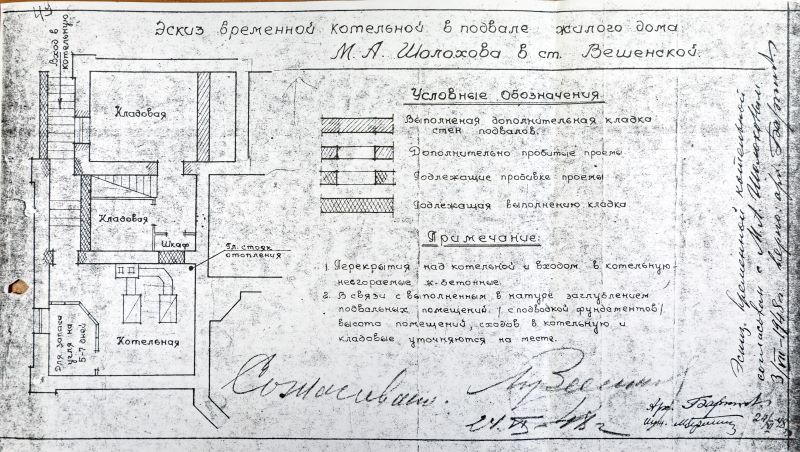 Эскиз временной котельной в подвале жилого дома
М. А. Шолохова в ст. Вешенской.
Вход в
котельную
Кладовая
Кладовая
Шкаф
Гл. стояк
отопления
Котельная
Для запаса
угля на
5-7 дней
Условные Обозначения
Выполненая дополнительная кладка
стен подвалов.
Дополнительно пробитые проемы
Подлежащие пробивке проемы
Подлежащая выполнению кладка
Примечание:
1. Перекрытия над котельной и входом в котельную-
несгораемые ж-бетонные.
2. В связи с выполненным в натуре заглублением
подвальных помещений, /сподводкой фундаментов/
высота помещений, сходов в котельную и
кладовые уточняются на месте.
Согласовано.
Эскиз временной котельной
согласован с М.А. Шолоховым
Арх.